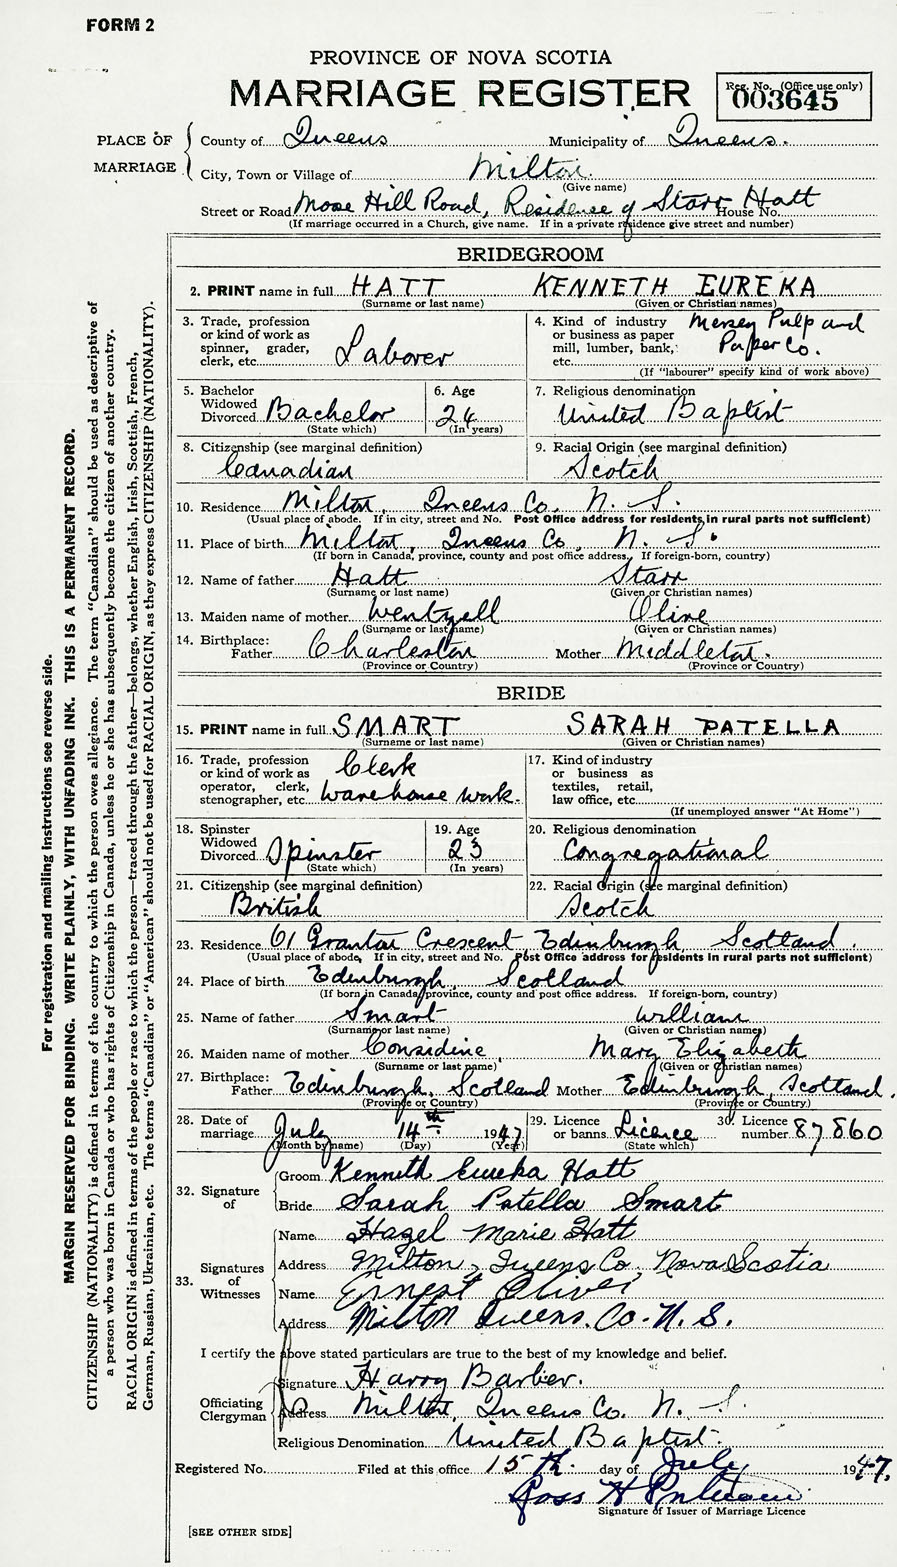 FORM 2
PROVINCE OF NOVA SCOTIA
MARRIAGE REGISTER
Reg. No. (Office use only)
003645
PLACE OF MARRIAGE
County of Queens Municipality of Queens.
City, Town or Village of Milton.
(Give name)
Street or Road Mose Hill Road, Residence of Starr Hatt House No.
(If marriage occurred in a Church, give name. If in a private residence give street and number)
BRIDEGROOM
2. PRINT name in full HATT KENNETH EUREKA
(Surname or last name) (Given or Christian names)
3. Trade, profession or kind of work as spinner, grader, clerk, etc. Laborer
4. Kind of industry or business as paper mill, lumber, bank, etc. Mersey Pulp and Paper Co.
(If "labourer" specify kind of work above)
5. Bachelor Widowed Divorced Bachelor
(State which)
6. Age 24
(In years)
7. Religious denomination
United Baptist
8. Citizenship (see marginal definition)
Canadian
9. Racial Origin (see marginal definition)
Scotch
10. Residence Milton, Queens Co. N. S.
(Usual place of abode. If in city, street and No. Post Office address for residents in rural parts not sufficient)
11. Place of birth Milton, Queens Co., N. S.
(If born in Canada, province, county and post office address. If foreign-born, country)
12. Name of father Hatt Starr
(Surname or last name) (Given or Christian names)
13. Maiden name of mother Wentzell Olive
(Surname or last name) (Given or Christian names)
14. Birthplace:
Father Charleston Mother Middleton.
(Province or Country) (Province or Country)
BRIDE
15. PRINT name in full SMART SARAH PATELLA
(Surname or last name) (Given or Christian names)
16. Trade, profession or kind of work as operator, clerk, stenographer, etc. Clerk Warehouse work.
17. Kind of industry or business as textiles, retail, law office, etc.
(If unemployed answer "At Home")
18. Spinster Widowed Divorced Spinster
(State which)
19. Age 23
(In years)
20. Religious denomination
Congregational
21. Citizenship (see marginal definition)
British
22. Racial Origin (see marginal definition)
Scotch
23. Residence 61 Granton Crescent, Edinburgh Scotland.
(Usual place of abode. If in city, street and No. Post Office address for residents in rural parts not sufficient)
24. Place of birth Edinburgh, Scotland
(If born in Canada, province, county and post office address. If foreign-born, country)
25. Name of father Smart William
(Surname or last name) (Given or Christian names)
26. Maiden name of mother Considine, Mary Elizabeth
(Surname or last name) (Given or Christian names)
27. Birthplace:
Father Edinburgh, Scotland Mother Edinburgh, Scotland.
(Province or Country) (Province or Country)
28. Date of marriage July 14th 1947
(Month by name) (Day) (Year)
29. Licence or banns Licence
(State which)
30. Licence number 87860
32. Signature of
Groom Kenneth Eureka Hatt
Bride Sarah Patella Smart
33. Signatures of Witnesses
Name Hazel Marie Hatt
Address Milton, Queens Co, Nova Scotia
Name Ernest Oliver
Address Milton Queens. Co. N. S.
I certify the above stated particulars are true to the best of my knowledge and belief.
Officiating Clergyman
Signature Harry Barber.
Address Milton, Queens Co. N. S.
Religious Denomination United Baptist.
Registered No. Filed at this office 15th. day of July 1947.
Ross H
Signature of Issuer of Marriage Licence
[SEE OTHER SIDE]
For registration and mailing instructions see reverse side.
MARGIN RESERVED FOR BINDING. WRITE PLAINLY, WITH UNFADING INK. THIS IS A PERMANENT RECORD.
CITIZENSHIP (NATIONALITY) is defined in terms of the country to which the person owes allegiance. The term "Canadian" should be used as descriptive of
a person who was born in Canada or who has rights of Citizenship in Canada, unless he or she has subsequently become the citizen of another country.
RACIAL ORIGIN is defined in terms of the people or race to which the person—traced through the father—belongs, whether English, Irish, Scottish, French,
German, Russian, Ukrainian, etc. The terms "Canadian" or "American" should not be used for RACIAL ORIGIN, as they express CITIZENSHIP (NATIONALITY).